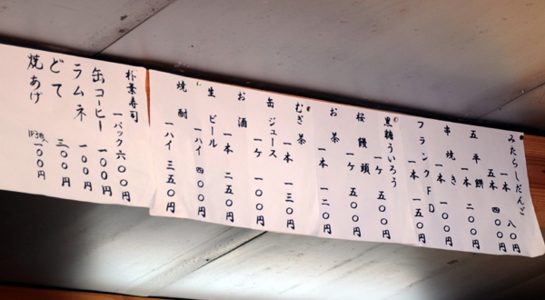 みたらしだんご 一本 八〇円
五平餅 一本 四〇〇円
串焼き 一本 二〇〇円
フランクFD 一本 一五〇円
黒糖ういろう 五〇〇円
桜饅頭 一ケ 五〇〇円
お茶 一本 一二〇円
むぎ茶 一本 一三〇円
缶ジュース 一ケ 一〇〇円
お酒 一本 二五〇円
生ビール 一ハイ 四〇〇円
焼酎 一ハイ 三五〇円
朴葉寿司 一パック 六〇〇円
缶コーヒー 一〇〇円
ラムネ 一〇〇円
どて 三〇〇円
焼あげ 一〇〇円